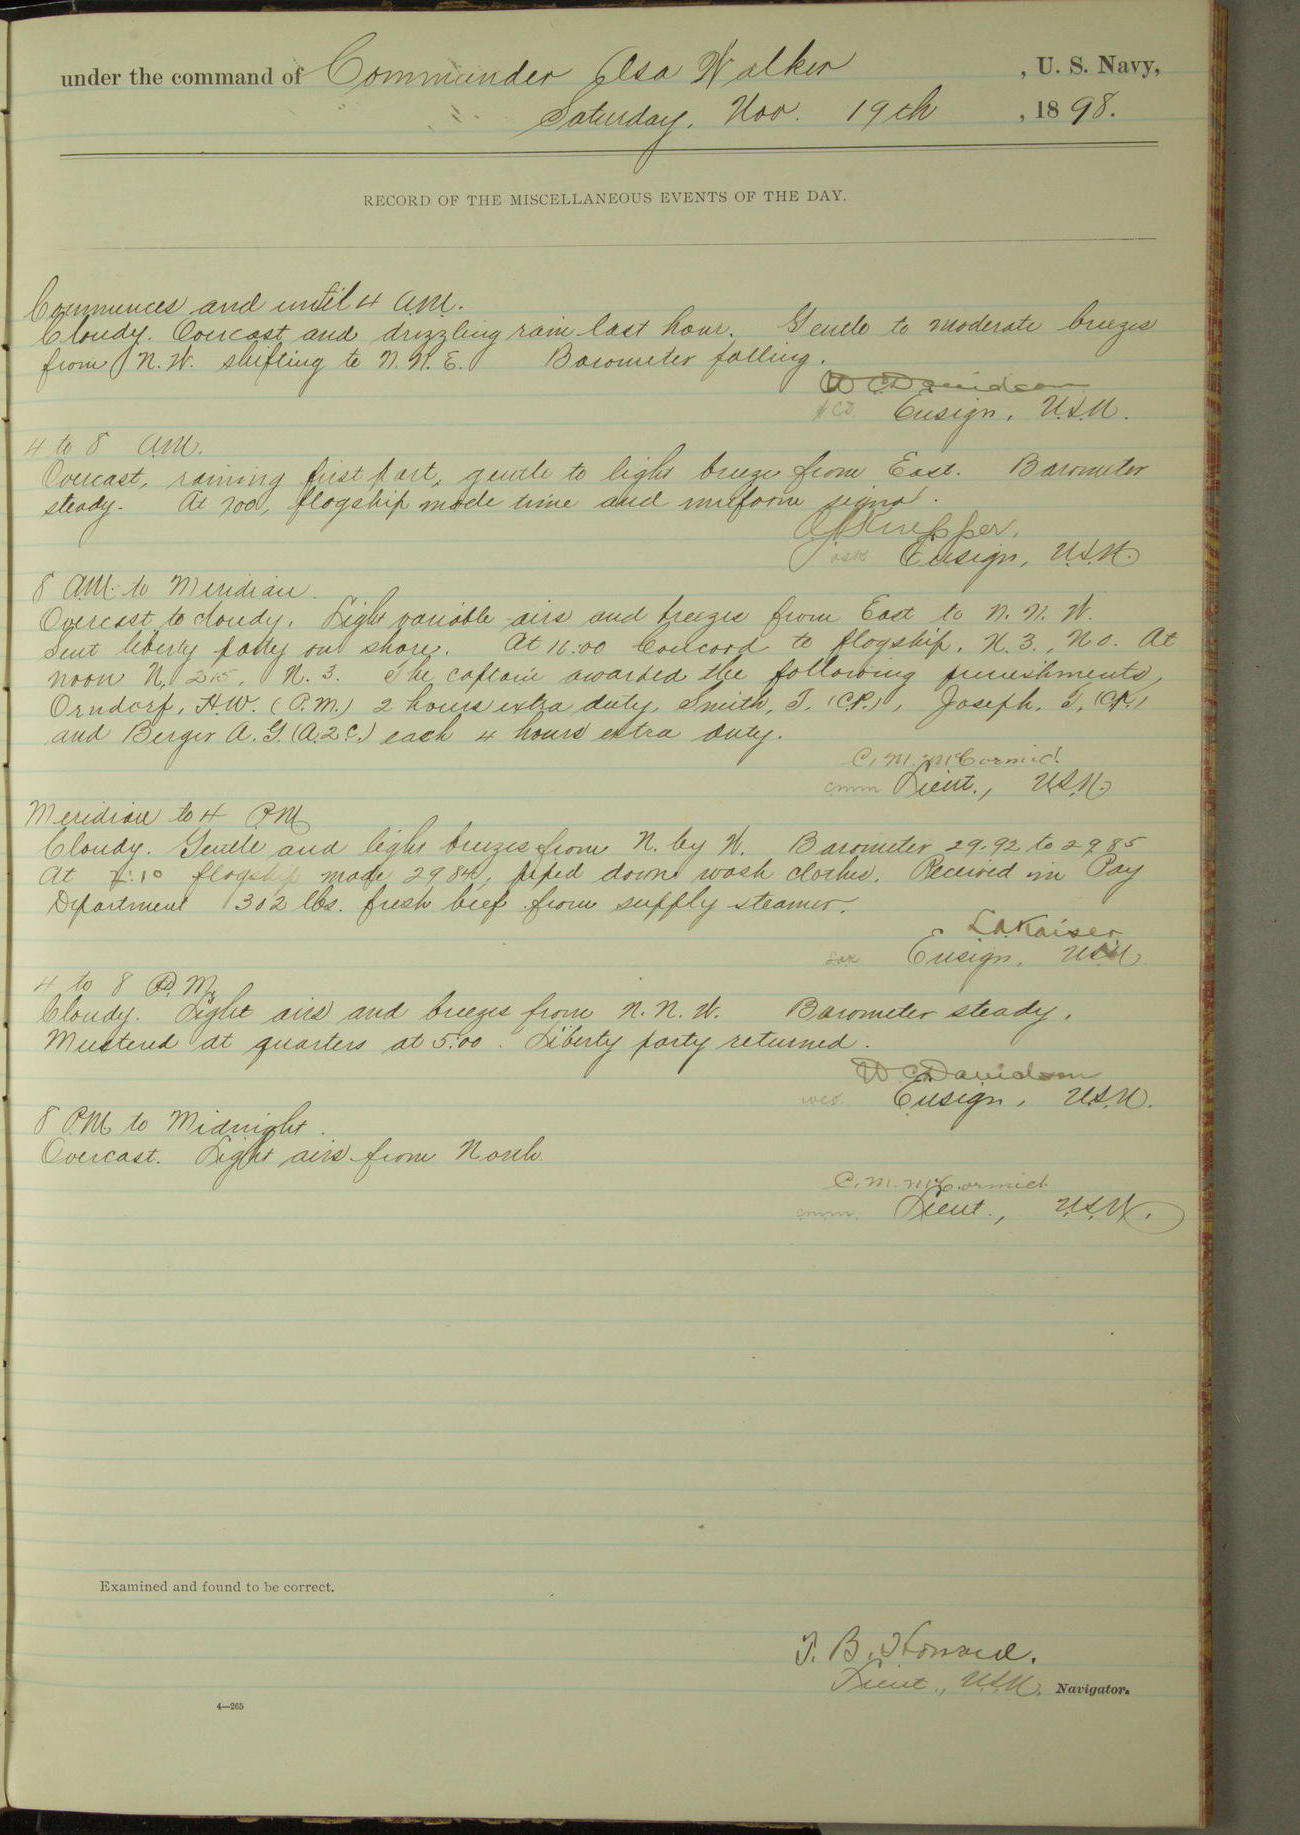 under the command of Commander Asa Walker , U. S. Navy,
Saturday, Nov. 19th , 1898.
RECORD OF THE MISCELLANEOUS EVENTS OF THE DAY.
Commences and until 4 A.M.
Cloudy. Overcast and drizzling rain last hour. Gentle to moderate breezes
from N.W. shifting to N.N.E. Barometer falling.
W C Davidson
Ensign, U.S.N.
4 to 8 A.M.
Overcast, raining first part, gentle to light breeze from East. Barometer
steady. At 700, flagship made time and uniform signal.
Knepper.
Ensign, U.S.N.
8 A.M. to Meridian.
Overcast to cloudy. Light variable airs and breezes from East to N.N.W.
Sent liberty party on shore. At 10:00 Concord to flagship, N. 3., N O. At
noon N. 25, N. 3. The captain awarded the following punishments,
Orndorf, H.W. (P.M.) 2 hours extra duty, Smith, T. (C.P.), Joseph, T. (C.P.)
and Berger A. G. (A.2C.) each 4 hours extra duty.
C. M. McCormick
cmm Lieut., U.S.N.
Meridian to 4 P.M.
Cloudy. Gentle and light breezes from N. by W. Barometer 29.92 to 29.85
At 1:10 flagship made 2984, piped down wash clothes. Received in Pay
Department 302 lbs. fresh beef from supply steamer.
L A Kaiser
LAK Ensign, U.S.N.
4 to 8 P.M.
Cloudy. Light airs and breezes from N.N.W. Barometer steady.
Mustered at quarters at 5:00. Liberty party returned.
W. C. Davidson
WCD Ensign, U.S.N.
8 P.M. to Midnight.
Overcast. Light airs from North.
C. M. McCormick
cmm. Lieut., U.S.N.
Examined and found to be correct.
T. B. Howard.
Lieut., U.S.N. Navigator.
4—265